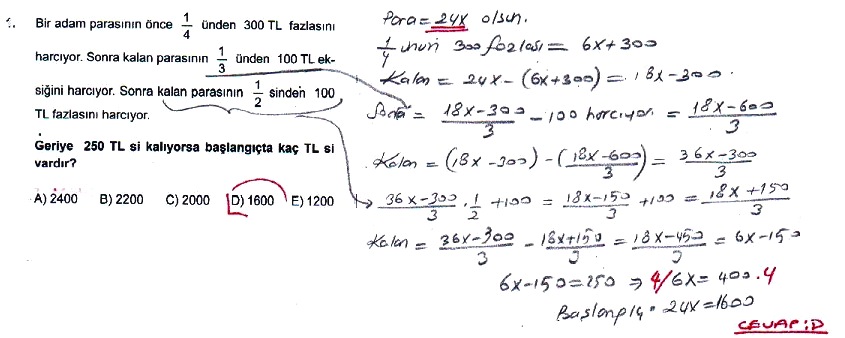 1. Bir adam parasının önce 1/4 ünden 300 TL fazlasını
harcıyor. Sonra kalan parasının 1/3 ünden 100 TL ek-
siğini harcıyor. Sonra kalan parasının 1/2 sinden 100
TL fazlasını harcıyor.
Geriye 250 TL si kalıyorsa başlangıçta kaç TL si
vardır?
A) 2400 B) 2200 C) 2000 D) 1600 E) 1200
Para = 24x olsun.
1/4 unun 300 fazlası = 6x+300
Kalan = 24x-(6x+300) = 18x-300.
= (18x-300)/3 - 100 harcıyor. = (18x-600)/3
Kalan = (18x-300) - ((18x-600)/3) = (36x-300)/3
(36x-300)/3 . 1/2 +100 = (18x-150)/3 +100 = (18x+150)/3
Kalan = (36x-300)/3 - (18x+150)/3 = (18x-450)/3 = 6x-150
6x-150=250 ⇒ 4/6x = 400.4
Başlangıç = 24x=1600
CEVAP:D